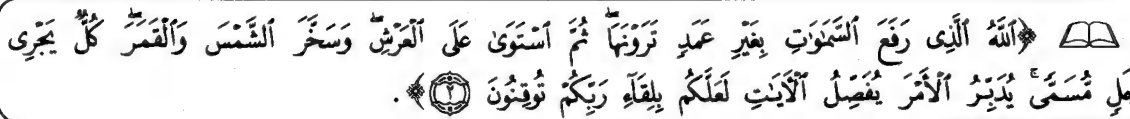 ﴿ٱللَّهُ ٱلَّذِى رَفَعَ ٱلسَّمَٰوَٰتِ بِغَيْرِ عَمَدٍ تَرَوْنَهَا ۖ ثُمَّ ٱسْتَوَىٰ عَلَى ٱلْعَرْشِ ۖ وَسَخَّرَ ٱلشَّمْسَ وَٱلْقَمَرَ ۖ كُلٌّ يَجْرِى
مُّسَمًّى ۚ يُدَبِّرُ ٱلْأَمْرَ يُفَصِّلُ ٱلْءَايَٰتِ لَعَلَّكُم بِلِقَآءِ رَبِّكُمْ تُوقِنُونَ ۝٢﴾.